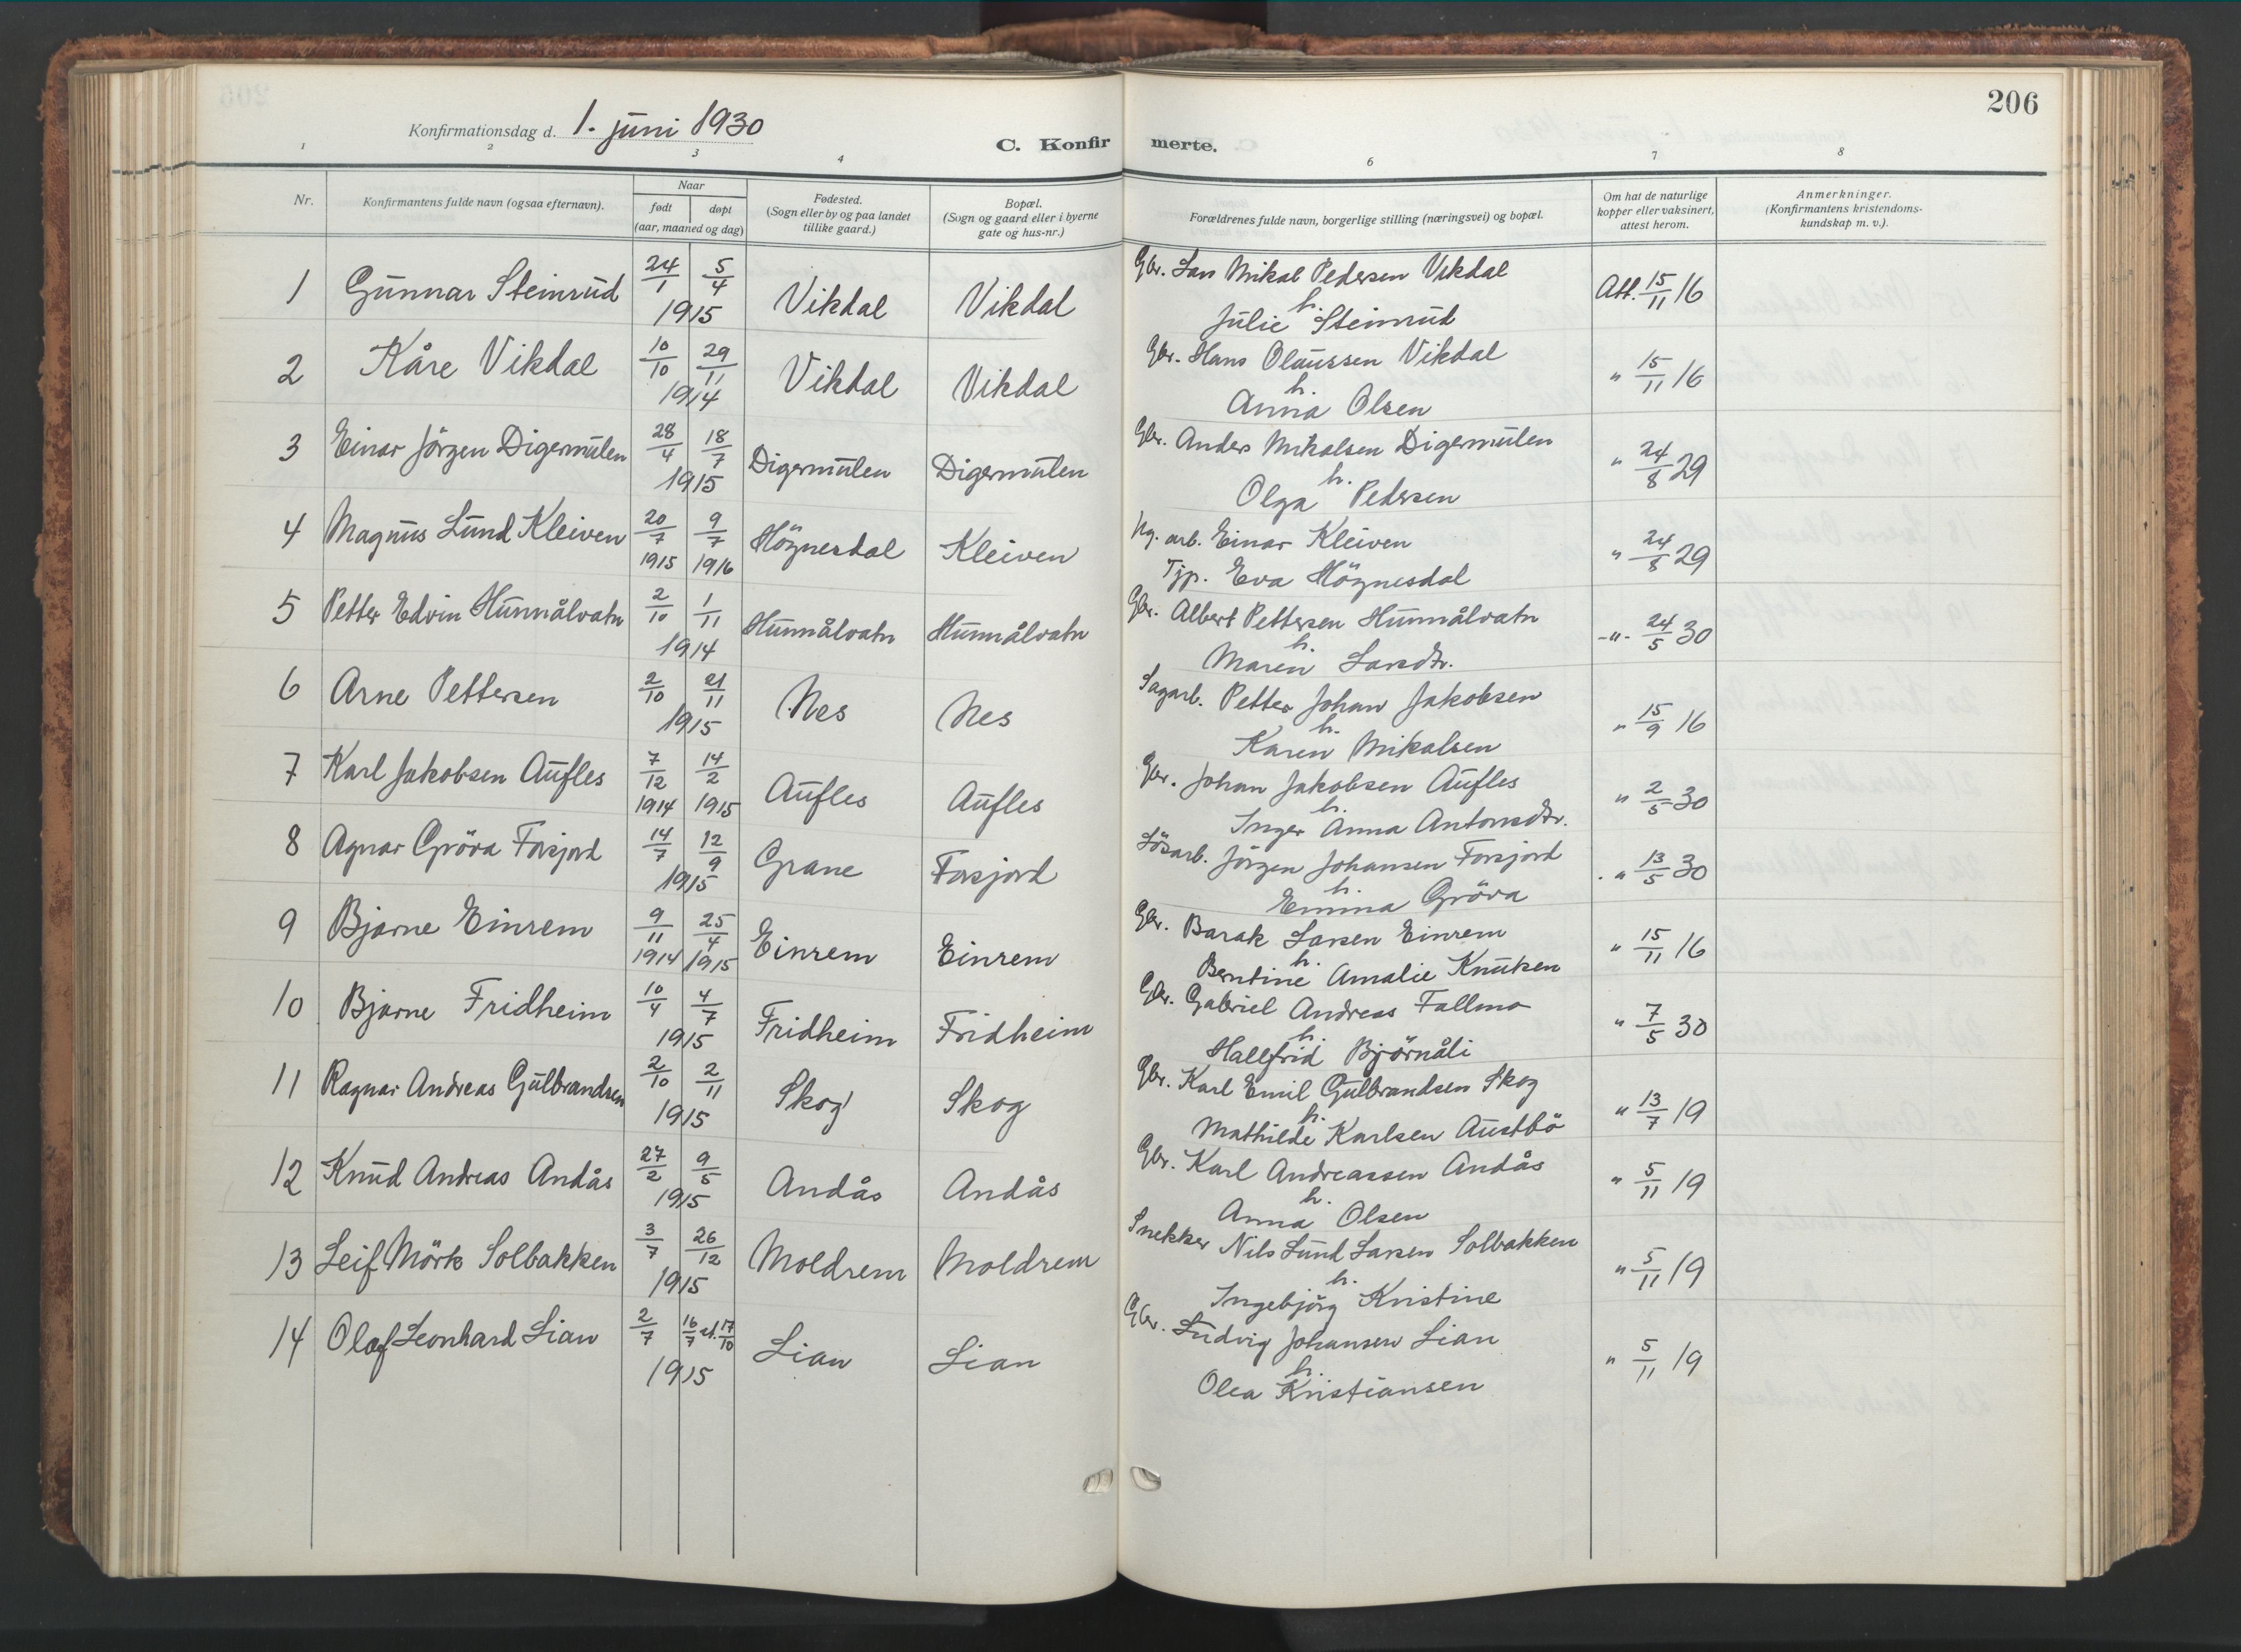 206
Konfirmationsdag d. 1. juni 1930
C. Konfirmerte.
1 2 3 4 6 7 8
Nr.
Konfirmantens fulde navn (ogsaa efternavn).
Naar
født døpt
(aar, maaned og dag)
Fødested.
(Sogn eller by og paa landet
tillike gaard.)
Bopæl.
(Sogn og gaard eller i byerne
gate og hus-nr.)
Forældrenes fulde navn, borgerlige stilling (næringsvei) og bopæl.
Om hat de naturlige
kopper eller vaksinert,
attest herom.
Anmerkninger.
(Konfirmantens kristendoms-
kundskap m. v.).
1 Gunnar Steinrud 24/1 5/4 1915 Vikdal Vikdal Gbr. Lars Mikal Pedersen Vikdal Att. 15/11 16
h.
Julie Steinrud
2 Kåre Vikdal 10/10 29/11 1914 Vikdal Vikdal Gbr. Hans Olaussen Vikdal " 15/11 16
h.
Anna Olsen
3 Einar Jörgen Digermulen 28/4 18/7 1915 Digermulen Digermulen Gbr. Anders Mikalsen Digermulen " 24/8 29
h.
Olga Pedersen
4 Magnus Lund Kleiven 20/7 1915 9/7 1916 Högnesdal Kleiven Ug. arb. Einar Kleiven " 24/8 29
Tjp. Eva Högnesdal
5 Petter Edvin Hunnålvatn 2/10 1/11 1914 Hunnålvatn Hunnålvatn Gbr. Albert Pettersen Hunnålvatn -"- 24/5 30
h.
Maren Larsdtr.
6 Arne Pettersen 2/10 21/11 1915 Nes Nes Sagarb. Petter Johan Jakobsen " 15/9 16
h.
Karen Mikalsen
7 Karl Jakobsen Aufles 7/12 1914 14/2 1915 Aufles Aufles Gbr. Johan Jakobsen Aufles " 2/5 30
h.
Inger Anna Antonsdtr.
8 Agnar Gröva Forsjord 14/7 12/9 1915 Grane Forsjord Lösarb. Jörgen Johansen Forsjord " 13/5 30
h.
Emma Gröva
9 Bjarne Einrem 9/11 1914 25/4 1915 Einrem Einrem Gbr. Barak Larsen Einrem " 15/11 16
h.
Berntine Amalie Knutsen
10 Bjarne Fridheim 10/4 4/7 1915 Fridheim Fridheim Gbr. Gabriel Andreas Fallmo " 7/5 30
h.
Hallfrid Björnåli
11 Ragnar Andreas Gulbrandsen 2/10 2/11 1915 Skog Skog Gbr. Karl Emil Gulbrandsen Skog " 13/7 19
h.
Mathilde Karlsen Austbö
12 Knud Andreas Andås 27/2 9/5 1915 Andås Andås Gbr. Karl Andreassen Andås " 5/11 19
h.
Anna Olsen
13 Leif Mörk Solbakken 3/7 26/12 1915 Moldrem Moldrem Snekker Nils Lund Larsen Solbakken " 5/11 19
h.
Ingebjörg Kristine
14 Olaf Leonhard Lian 2/7 16/7 st. 17/10 1915 Lian Lian Gbr. Ludvig Johansen Lian " 5/11 19
h.
Olea Kristiansen